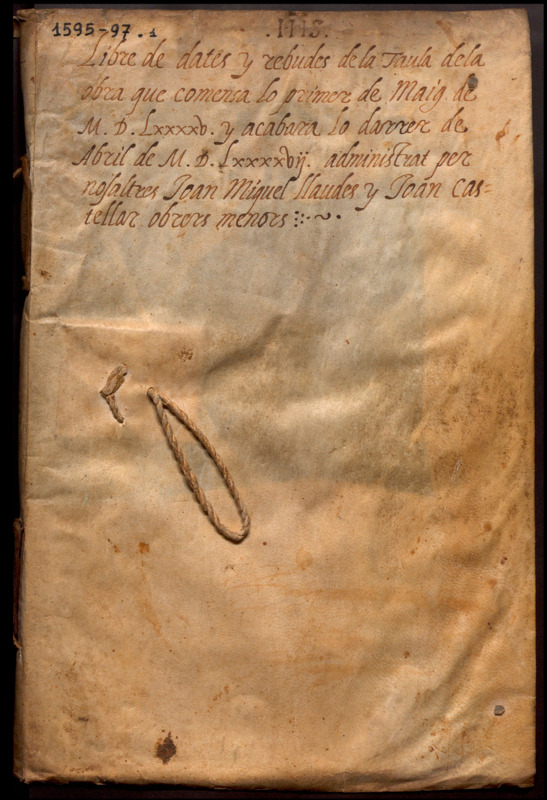 1595-97. 1
.IHS.
Libre de dates y rebudes de la Taula dela
obra que comensa lo primer de Maig de
M. D. Lxxxxv. y acabara lo darrer de
Abril de M. D. Lxxxxvij. administrat per
nosaltres Joan Miquel llaudes y Joan Cas=
tellar obrers menors